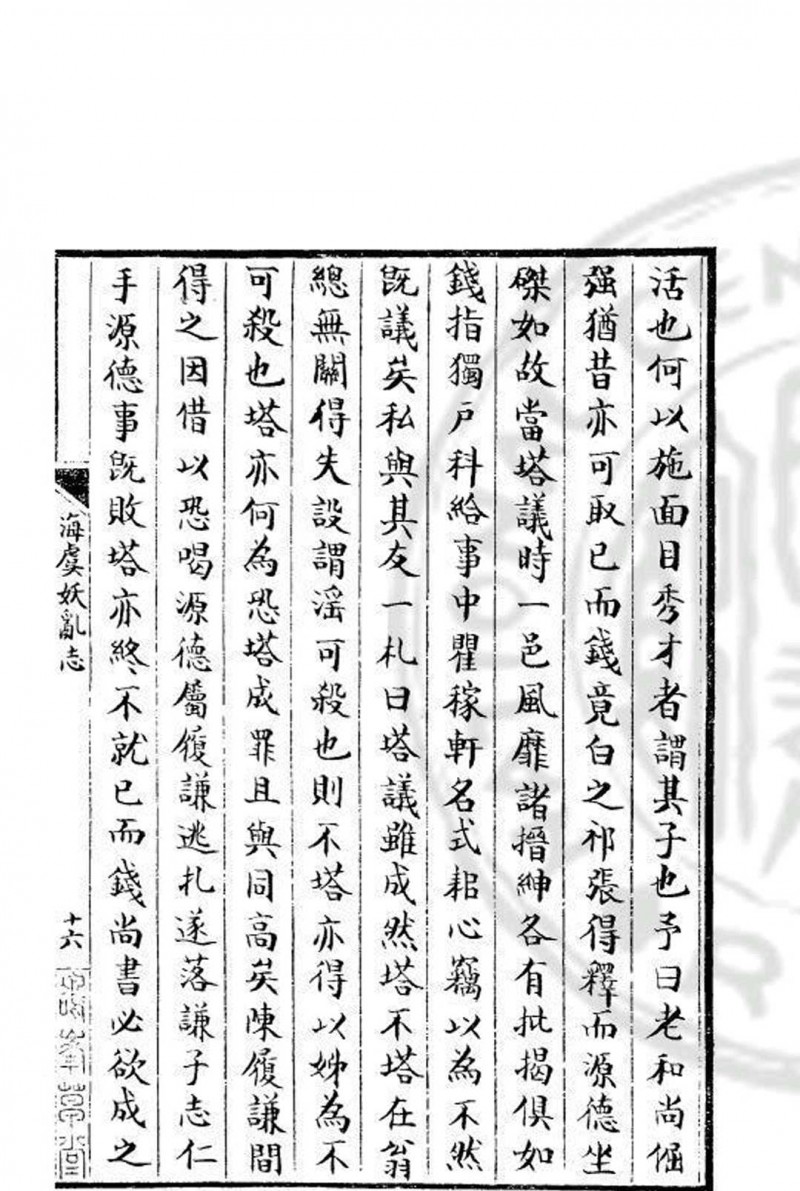 活也何以施面目秀才者謂其子也予曰老和尚倔
强猶昔亦可取已而錢竟白之祁張得釋而源德坐
磔如故當塔議時一邑風靡諸搢紳各有批揭俱如
錢指獨户科給事中瞿稼軒名式耜心竊以為不然
既議矣私與其友一札曰塔議雖成然塔不塔在翁
總無關得失設謂滛可殺也則不塔亦得以姊為不
可殺也塔亦何為恐塔成罪且與同高矣陳履謙間
得之因借以恐喝源德屬履謙逃札遂落謙子志仁
手源德事既敗塔亦終不就已而錢尚書必欲成之
海虞妖亂志
十六